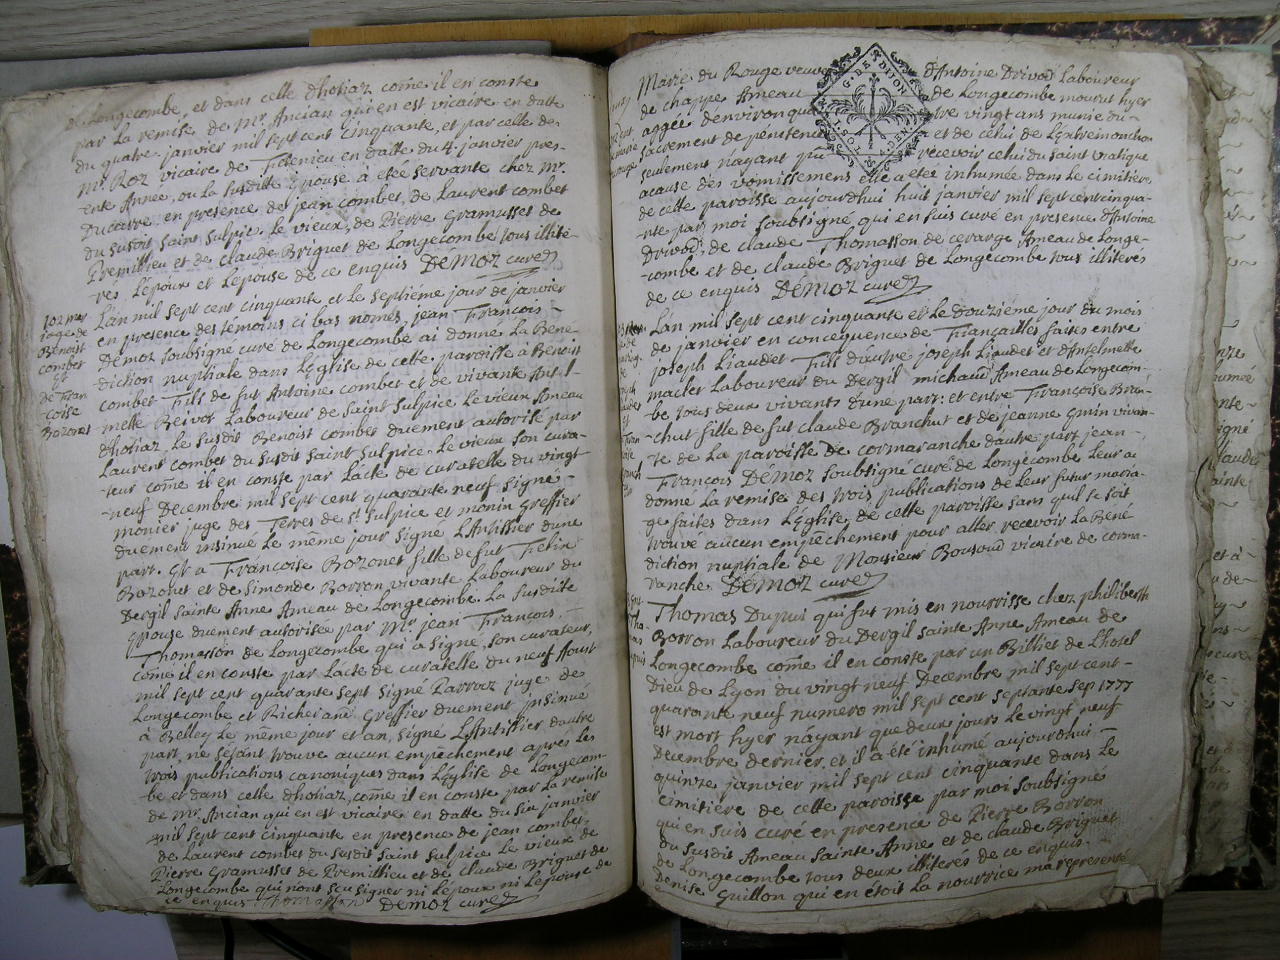 de Longecombe, et dans celle dhotiaz come il en conste
par la remise de Mr. Ancian qui en est vicaire en datte
du quatre janvier mil sept cent cinquante, et par celle de
Mr. Roz vicaire de Titenieu en datte du 4. janvier pres-
ente Année, ou la susditte Epouse à etée servante chez Mr.
Ducarre en presence de jean combet, de Laurent combet
du susdit saint sulpice le vieux, de Pierre Gramusset de
Premillieu et de claude Briguet de Longecombe tous illité-
rés, Lépoux et Lepouse de ce enquis DeMoz curez
Lán mil sept cent cinquante et le septiéme jour de janvier
en presence des témoins ci bas només, jean François
Démoz soubsigné curé de Longecombe ai donné la Bene-
diction nuptiale dans Léglise de cette paroisse à Benoist
combet Fils de fut Antoine combet et de vivante Antel-
mette Reivot Laboureur de saint sulpice Le vieux Ameau
dhotiaz, Le susdit Benoist combet duement autorisé par
Laurent combet du susdit saint sulpice Le vieux son cura-
teur come il en conste par Lácte de curatelle du vingt
neuf Decembre mil sept cent quarante neuf signé
monier juge des Terres de st. sulpice et monin Greffier
duement insinué Le même jour signé LAntissier dune
part. Et a Françoise Bozonet fille de fut Felix
Bozonet et de simonde Borron vivante Laboureur du
Dergil sainte Anne Ameau de Longecombe. La susditte
Epouse duement autorisée par Mr jean François
Thomasson de Longecombe qui à signé, son curateur,
come il en conste par Lácte de curatelle du neuf Aoust
mil sept cent quarante sept signé Parroz juge de
Longecombe et Richerand Greffier duement insinué
à Belley Le même jour et an, signé LAntissier dautre
part, ne sejant trouvé aucun empêchement après les
trois publications canoniques dans Léglise de Longecom-
be et dans celle dhotiaz, come il en conste par La remise
de Mr. Ancian qui en est vicaire en datte du six janvier
mil sept cent cinquante en presence de jean combet,
de Laurent combet du susdit saint sulpice Le vieux de
Pierre Gramusset de Premillieu et de claude Briguet de
Longecombe qui nont sçu signer ni Lépoux ni Lépouse de
ce enquis Thomasson DeMoz curez
mar
iage de
Benoist
combet
et
de Fran
çoise
Bozonet
Marie du Rouge veuve dAntoine Drivod Laboureur
de chappe Ameau de Longecombe mourut hyer
aggée denviron quatre vingt ans munie du
sacrement de pénitence et de celui de Lextremonction
seulement nayant pu recevoir celui du saint viatique
acause des vomissemens elle a étée inhumée dans le cimitière
de cette paroisse aujourdhui huit janvier mil sept cent cinqua-
nte par moi soubsigné qui en suis curé en presence dAntoine
Drivod, de claude Thomasson de cerarge Ameau de Longe-
combe et de claude Briguet de Longecombe tous illiteres
de ce enquis DéMoz curez
Lán mil sept cent cinquante et Le douziéme jour du mois
de janvier en concequence de Fiançailles faites entre
joseph Liaudet Fils dautre joseph Liaudet et dAntelmette
maclet Laboureur du Dergil michaud Ameau de Longecom-
be tous deux vivants dune part: et entre Françoise Bran-
chut fille de fut claude Branchut et de jeanne Gmin vivan-
te de La paroisse de cormaranche dautre part jean
François Démoz soubsigné curé de Longecombe Leur a
donné La remise des trois publications de Leur futur maria-
ge faites dans Léglise de cette paroisse sans quil se soit
trouvé aucun empêchement pour aller recevoir La Béné
diction nuptiale de Monsieur Bousoud vicaire de corma-
ranche DéMoz curez
Thomas Dupuis qui fut mis en nourrisse chez philiberth
Borron Laboureur du Dergil sainte Anne Ameau de
Longecombe come il en conste par un Billiet de Lhotel
Dieu de Lyon du vingt neuf Decembre mil sept cent
quarante neuf numero mil sept cent septante sep 1777
est mort hyer nayant que deux jours Le vingt neuf
Decembre dernier, et il a été inhumé aujourdhui
quinze janvier mil sept cent cinquante dans Le
cimitière de cette paroisse par moi soubsigné
qui en suis curé en presence de Pierre Borron
du susdit Ameau sainte Anne et de claude Briguet
de Longecombe tous deux illiteres de ce enquis.
Denise Guillon qui en étoit La nourrice ma representé
G. DE DIJON